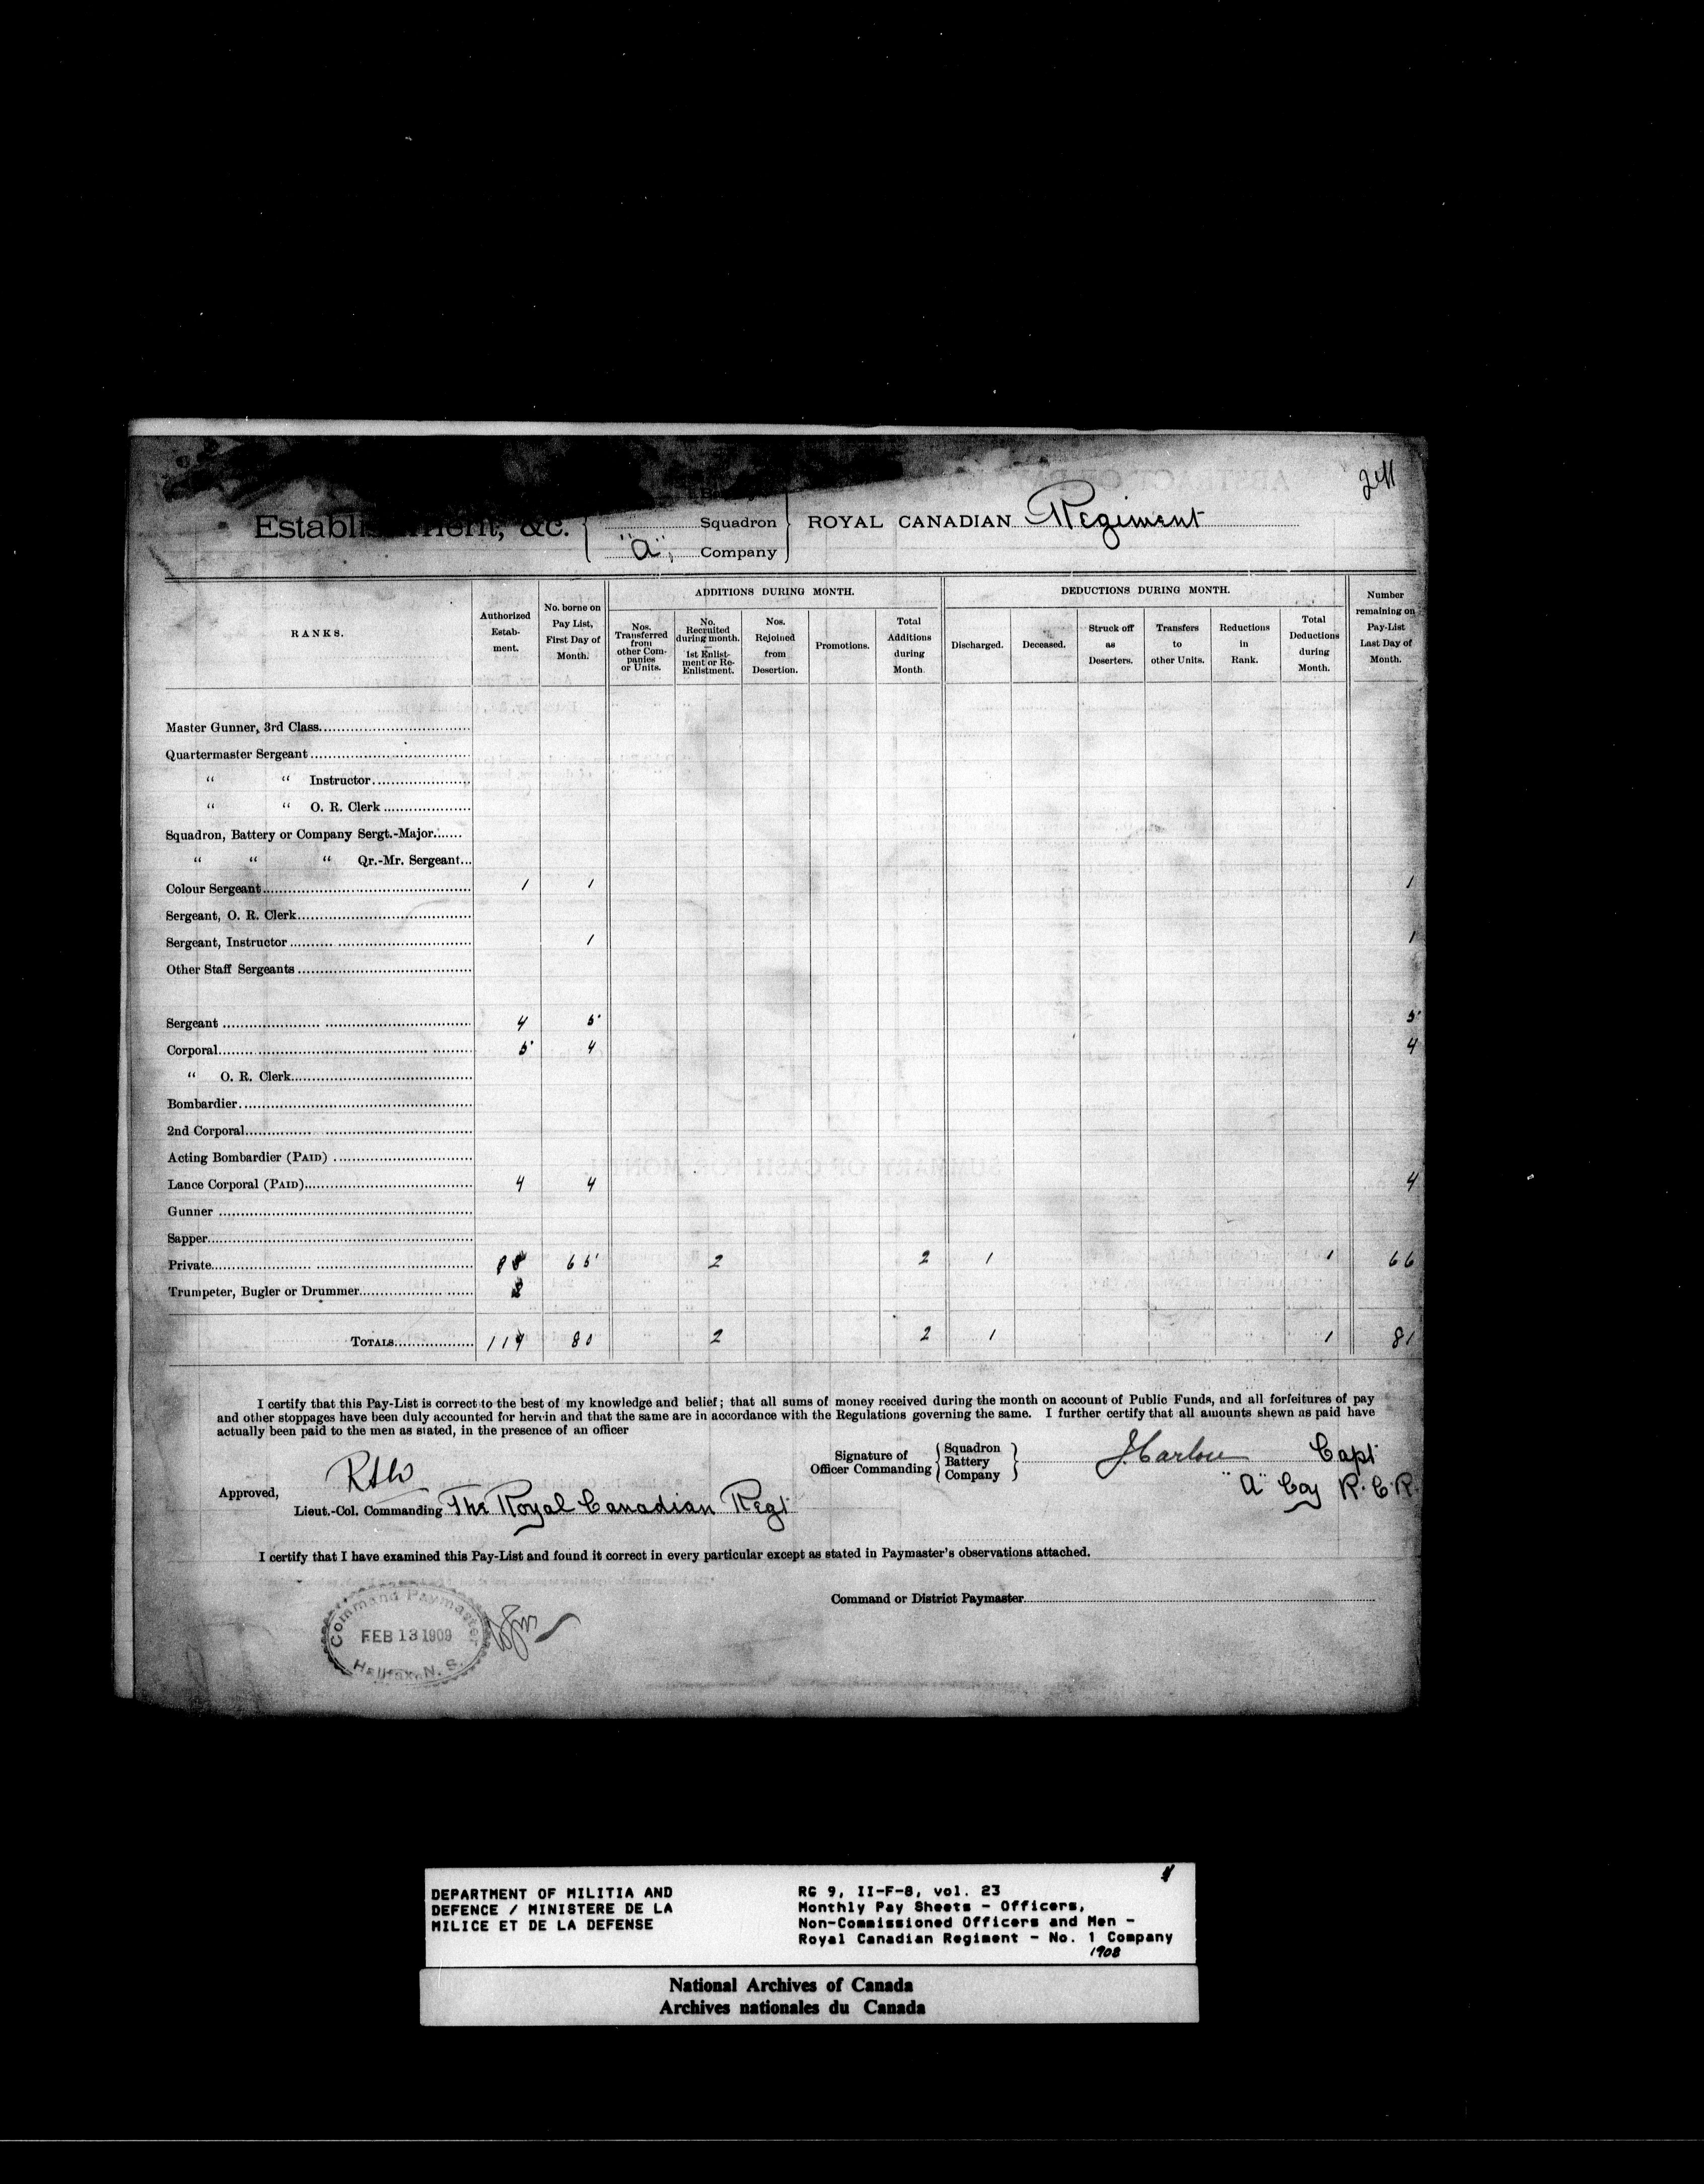 241
Establishment, &c.
Squadron
"A" Company
ROYAL CANADIAN Regiment
RANKS.
Authorized Estab- ment.
No. borne on Pay List, First Day of Month.
ADDITIONS DURING MONTH.
Nos. Transferred from other Com- panies or Units.
No. Recruited during month. 1st Enlist- ment or Re- Enlistment.
Nos. Rejoined from Desertion.
Promotions.
Total Additions during Month.
DEDUCTIONS DURING MONTH.
Discharged.
Deceased.
Struck off as Deserters.
Transfers to other Units.
Reductions in Rank.
Total Deductions during Month.
Number remaining on Pay-List Last Day of Month.
Master Gunner, 3rd Class
Quartermaster Sergeant
" " Instructor
" " O. R. Clerk
Squadron, Battery or Company Sergt.-Major
" " " Qr.-Mr. Sergeant
Colour Sergeant 1 1 1
Sergeant, O. R. Clerk
Sergeant, Instructor 1 1
Other Staff Sergeants
Sergeant 4 5 5
Corporal 5 4 4
" O. R. Clerk
Bombardier
2nd Corporal
Acting Bombardier (PAID)
Lance Corporal (PAID) 4 4 4
Gunner
Sapper
Private 65 2 2 1 1 66
Trumpeter, Bugler or Drummer
TOTALS 80 2 2 1 1 81
I certify that this Pay-List is correct to the best of my knowledge and belief; that all sums of money received during the month on account of Public Funds, and all forfeitures of pay
and other stoppages have been duly accounted for herein and that the same are in accordance with the Regulations governing the same. I further certify that all amounts shewn as paid have
actually been paid to the men as stated, in the presence of an officer
Signature of Officer Commanding
Squadron
Battery
Company
Capt
"A" Coy R.C.R.
Approved,
Lieut.-Col. Commanding The Royal Canadian Regt
I certify that I have examined this Pay-List and found it correct in every particular except as stated in Paymaster's observations attached.
Command or District Paymaster
Command Paymaster
FEB 13 1909
Halifax, N. S.
DEPARTMENT OF MILITIA AND
DEFENCE / MINISTERE DE LA
MILICE ET DE LA DEFENSE
RG 9, II-F-8, vol. 23
Monthly Pay Sheets - Officers,
Non-Commissioned Officers and Men -
Royal Canadian Regiment - No. 1 Company
1908
National Archives of Canada
Archives nationales du Canada